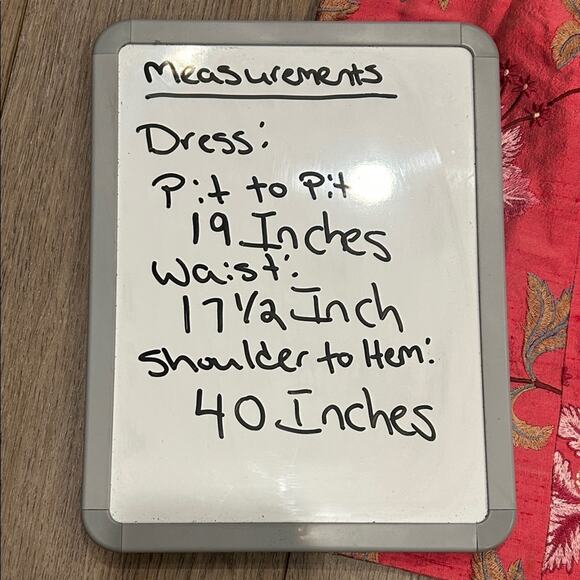 Measurements
Dress:
Pit to Pit
19 Inches
Waist:
17 1/2 Inch
Shoulder to Hem:
40 Inches